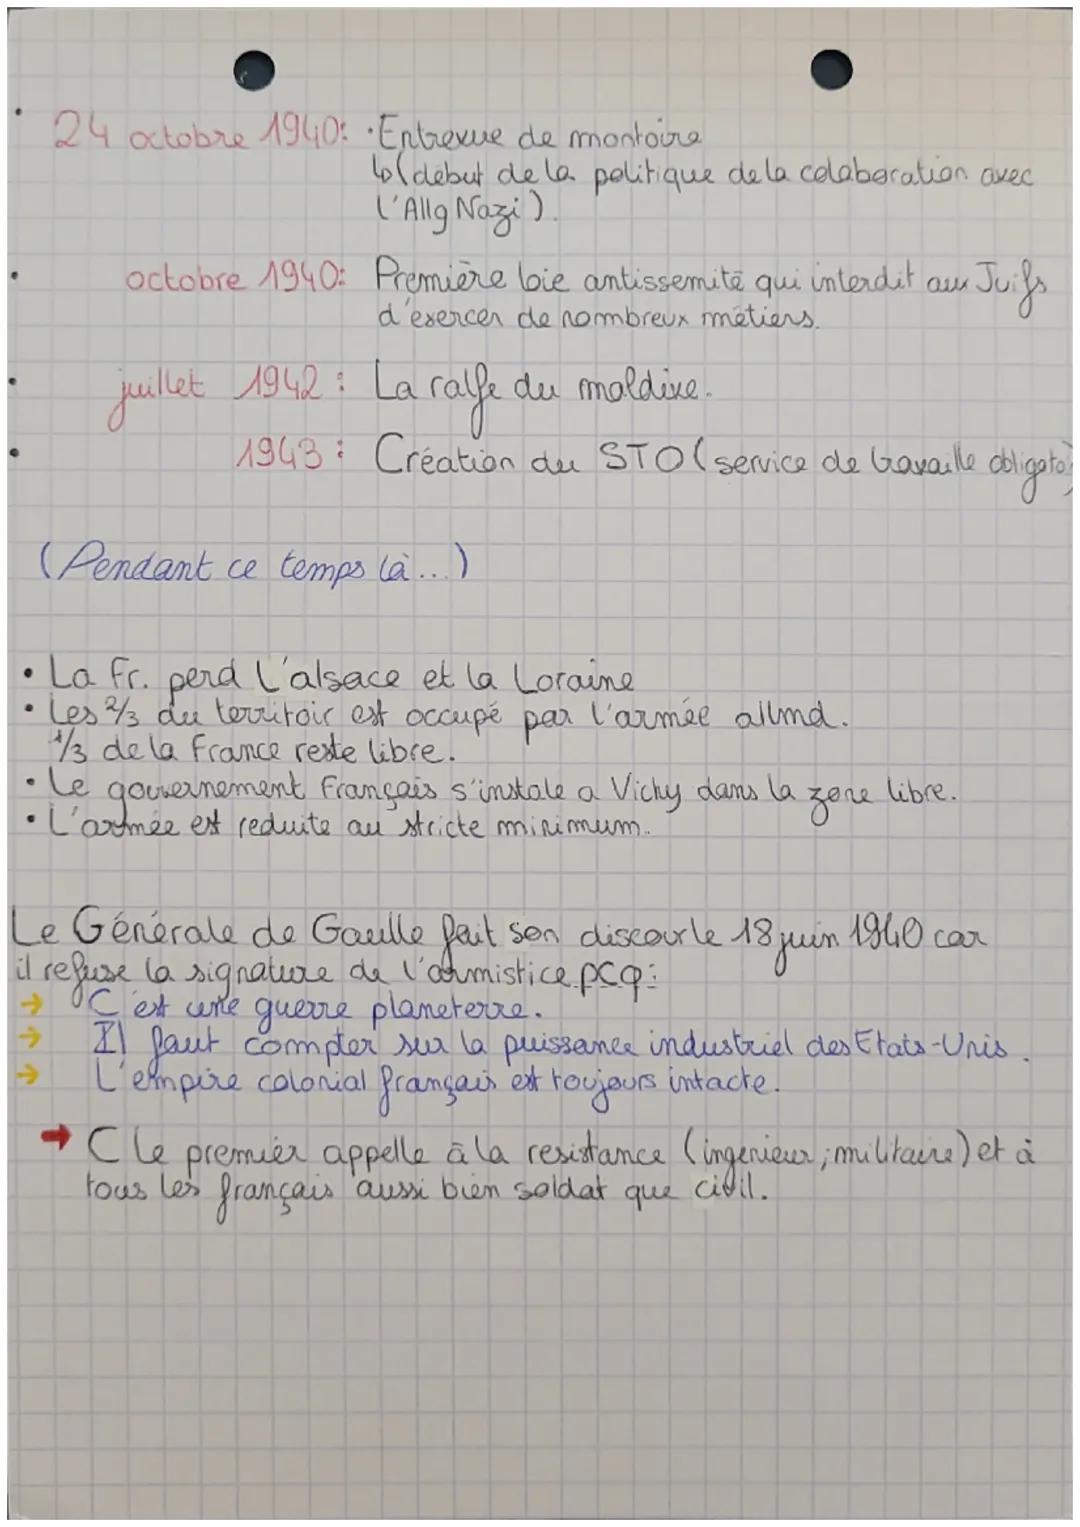 24 octobre 1940: · Entrevue de montoire
↳ (début de la politique de la colaboration avec
l'Allg Nazi).
octobre 1940: Première loie antissemite qui interdit aux Juifs
d'exercer de nombreux métiers.
juillet 1942: La ralfe du maldive.
1943: Création du STO (service de travaille obligato
(Pendant ce temps là...)
• La Fr. perd l'alsace et la Loraine
• Les 2/3 du territoir est occupé par l'armée allmd.
1/3 de la France reste libre.
• Le gouvernement Français s'instale a Vichy dans la zone libre.
• L'armée est reduite au stricte minimum.
Le Générale de Gaulle fait son discour le 18 juin 1940 car
il refuse la signature de l'armistice pcq:
→ C'est une guerre planeterre.
→ Il faut compter sur la puissance industriel des Etats-Unis.
→ L'empire colonial français est toujours intacte.
→ C le premier appelle à la resistance (ingenieur; militaire) et à
tous les français aussi bien soldat que civil.